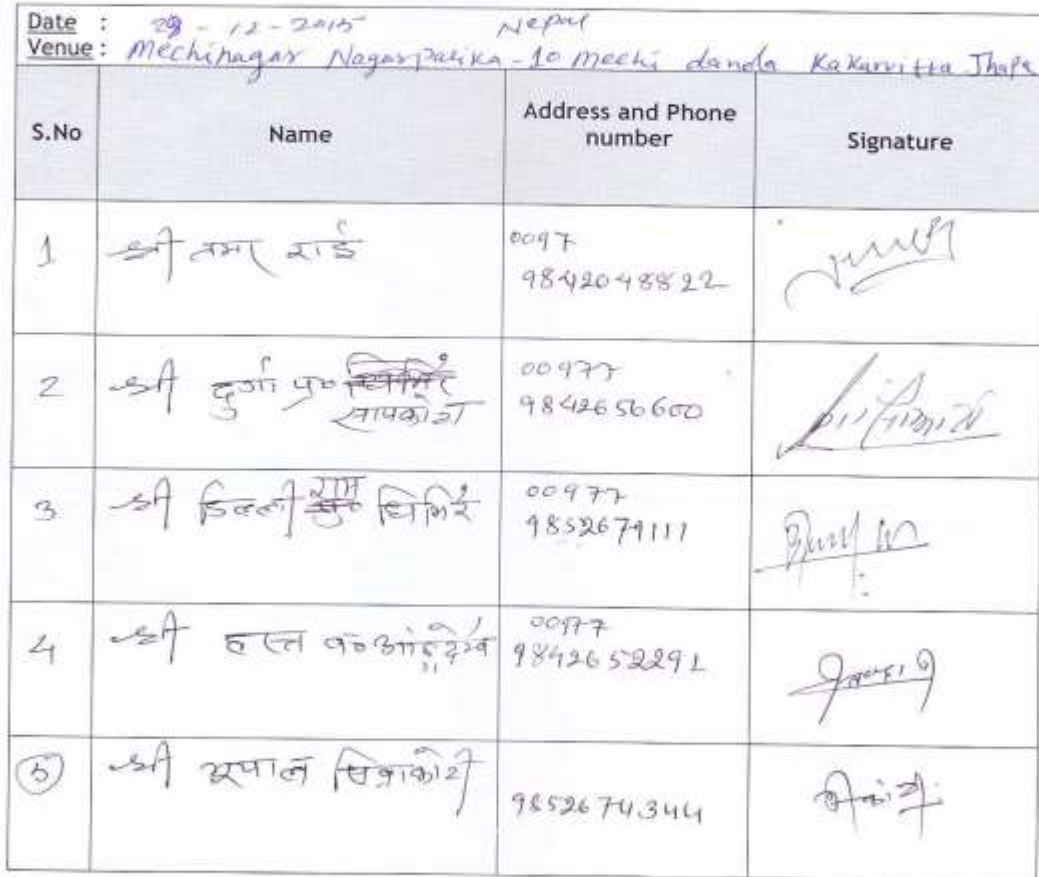 Date : 29 - 12 - 2015 Nepal
Venue : Mechinagar Nagarpalika - 10 mechi danda Kakarvitta Jhapa
S.No Name Address and Phone number Signature
1 श्री तमर राई 0097
9842048822
2 श्री दुर्गा प्र० घिमिरे 00977
सापकोटा 9842656600
3 श्री डिल्ली राम घिमिरे 00977
9852679111
4 श्री हस्त ब० 00977
9842652291
5 श्री भूपाल 9852674344